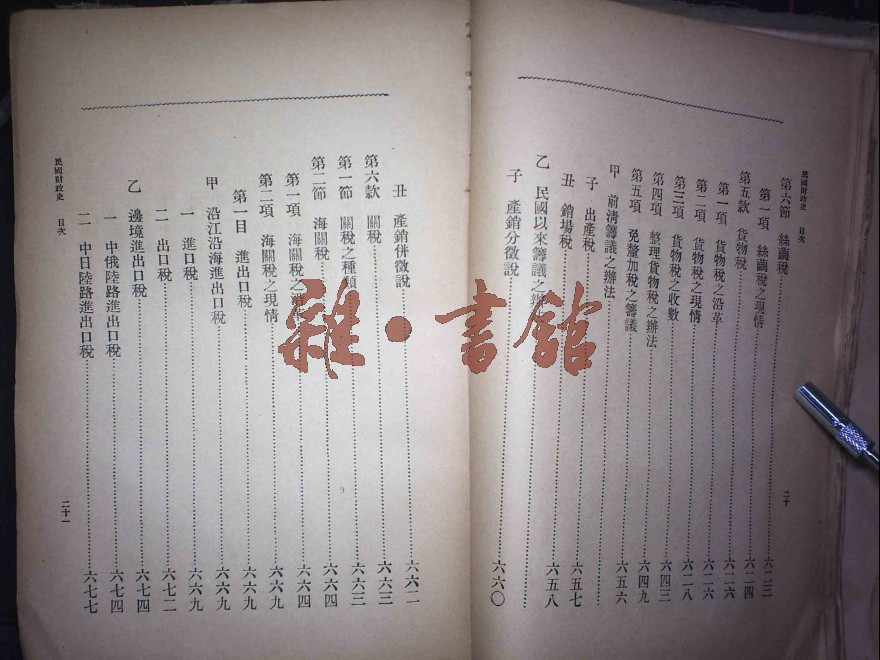 民國財政史 目次 二十
第六節 絲繭稅……六二三
第一項 絲繭稅之現情……六二四
第五款 貨物稅……六二六
第一項 貨物稅之沿革……六二六
第二項 貨物稅之現情……六二八
第三項 貨物稅之收數……六四三
第四項 整理貨物稅之辦法……六四九
第五項 免釐加稅之籌議……六五六
甲 前清籌議之辦法……
子 出產稅……六五七
丑 銷場稅……六五八
乙 民國以來籌議之辦……
子 產銷分徵說……六六〇
丑 產銷併徵說……六六二
第六款 關稅……六六三
第一節 關稅之種類……六六三
第二節 海關稅……六六四
第一項 海關稅之沿革……六六四
第二項 海關稅之現情……六六九
第一目 進出口稅……六六九
甲 沿江沿海進出口稅……六六九
一 進口稅……六六九
二 出口稅……六七二
乙 邊境進出口稅……六七四
一 中俄陸路進出口稅……六七四
二 中日陸路進出口稅……六七七
民國財政史 目次 二十一
雜·書館